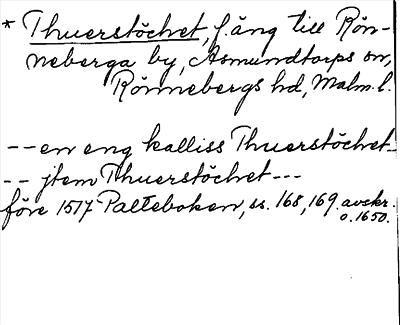 * Thuerstöchet, f. äng till Rön-
neberga by, Asmundtorps sn,
Rönnebergs hd, Malm. l.
-- en eng kalliss Thuerstöchet -
-- jtem Thuerstöchet ---
före 1517 Palteboken, ss. 168, 169. avskr.
o. 1650.